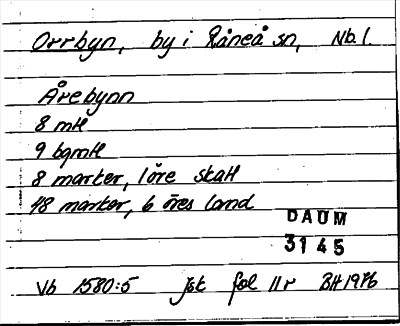 Orrbyn, by i Råneå sn, Nb.l.
Årebynn
8 mtl
9 bgmtl
8 marker, 1 öre skatt
48 marker, 6 öres land
DAUM
3145
Vb 1580:5 Jsk fol 11 r BH 1976